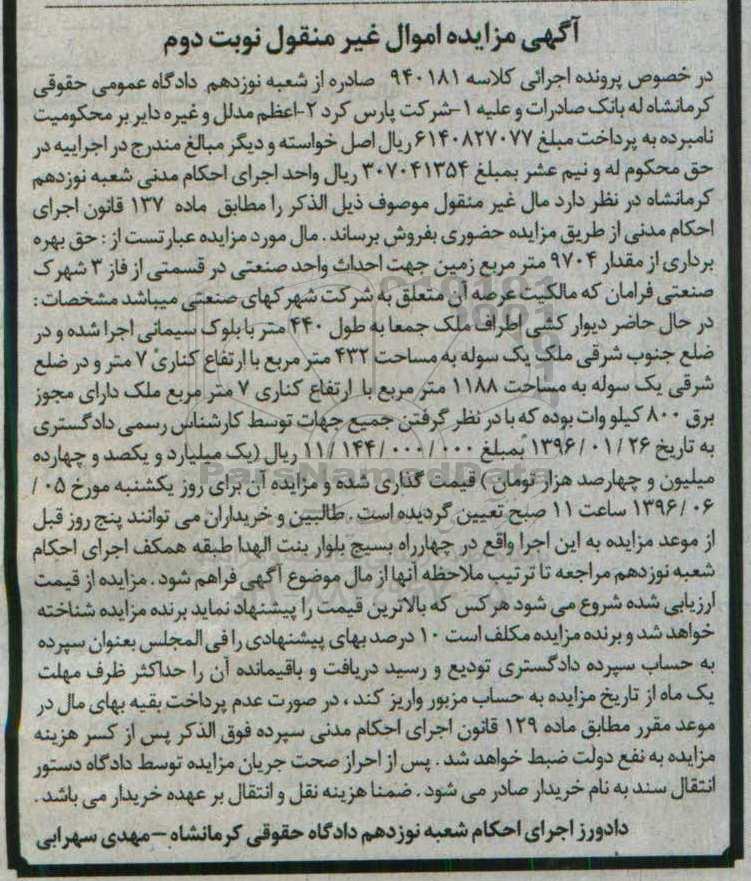 آگهی مزایده اموال غیر منقول نوبت دوم
در خصوص پرونده اجرائی کلاسه ۹۴۰۱۸۱ صادره از شعبه نوزدهم دادگاه عمومی حقوقی
کرمانشاه له بانک صادرات و علیه ۱-شرکت پارس کرد ۲-اعظم مدلل و غیره دایر بر محکومیت
نامبرده به پرداخت مبلغ ۶۱۴۰۸۲۷۰۷۷ ریال اصل خواسته و دیگر مبالغ مندرج در اجراییه در
حق محکوم له و نیم عشر بمبلغ ۳۰۷۰۴۱۳۵۴ ریال واحد اجرای احکام مدنی شعبه نوزدهم
کرمانشاه در نظر دارد مال غیر منقول موصوف ذیل الذکر را مطابق ماده ۱۳۷ قانون اجرای
احکام مدنی از طریق مزایده حضوری بفروش برساند . مال مورد مزایده عبارتست از : حق بهره
برداری از مقدار ۹۷۰۴ متر مربع زمین جهت احداث واحد صنعتی در قسمتی از فاز ۳ شهرک
صنعتی فرامان که مالکیت عرصه آن متعلق به شرکت شهرکهای صنعتی میباشد مشخصات :
در حال حاضر دیوار کشی اطراف ملک جمعا به طول ۴۴۰ متر با بلوک سیمانی اجرا شده و در
ضلع جنوب شرقی ملک یک سوله به مساحت ۴۳۲ متر مربع با ارتفاع کناری ۷ متر و در ضلع
شرقی یک سوله به مساحت ۱۱۸۸ متر مربع با ارتفاع کناری ۷ متر مربع ملک دارای مجوز
برق ۸۰۰ کیلو وات بوده که با در نظر گرفتن جمیع جهات توسط کارشناس رسمی دادگستری
به تاریخ ۱۳۹۶/۰۱/۲۶ بمبلغ ۱۱/۱۴۴/۰۰۰/۰۰۰ ریال (یک میلیارد و یکصد و چهارده
میلیون و چهارصد هزار تومان ) قیمت گذاری شده و مزایده آن برای روز یکشنبه مورخ ۰۵/
۱۳۹۶/۰۶ ساعت ۱۱ صبح تعیین گردیده است . طالبین و خریداران می توانند پنج روز قبل
از موعد مزایده به این اجرا واقع در چهارراه بسیج بلوار بنت الهدا طبقه همکف اجرای احکام
شعبه نوزدهم مراجعه تا ترتیب ملاحظه آنها از مال موضوع آگهی فراهم شود . مزایده از قیمت
ارزیابی شده شروع می شود هر کس که بالاترین قیمت را پیشنهاد نماید برنده مزایده شناخته
خواهد شد و برنده مزایده مکلف است ۱۰ درصد بهای پیشنهادی را فی المجلس بعنوان سپرده
به حساب سپرده دادگستری تودیع و رسید دریافت و باقیمانده آن را حداکثر ظرف مهلت
یک ماه از تاریخ مزایده به حساب مزبور واریز کند ، در صورت عدم پرداخت بقیه بهای مال در
موعد مقرر مطابق ماده ۱۲۹ قانون اجرای احکام مدنی سپرده فوق الذکر پس از کسر هزینه
مزایده به نفع دولت ضبط خواهد شد . پس از احراز صحت جریان مزایده توسط دادگاه دستور
انتقال سند به نام خریدار صادر می شود . ضمنا هزینه نقل و انتقال بر عهده خریدار می باشد .
دادورز اجرای احکام شعبه نوزدهم دادگاه حقوقی کرمانشاه –مهدی سهرابی
ParsNamadData